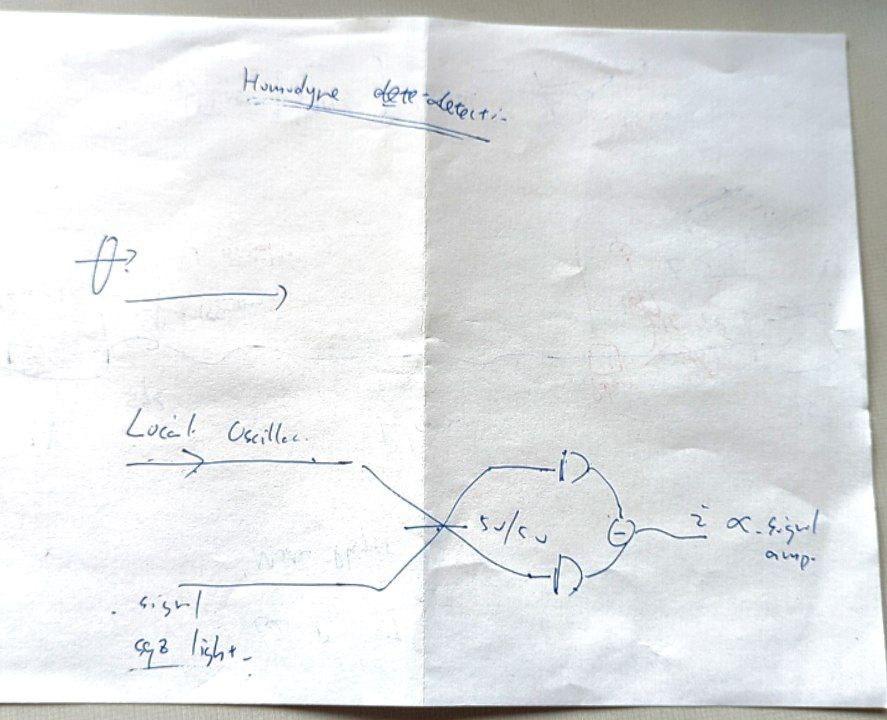 Homodyne dete-detecti-
?
Local Oscillac.
50/50
i ∝ signal
amp.
signal
sqz light.